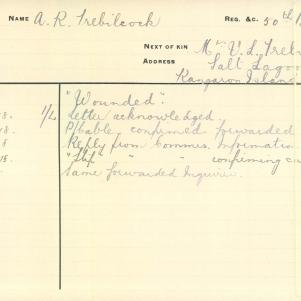 NAME A. R. Trebilcock REG. &C. 50th
NEXT OF KIN Mr V. L. Treb
ADDRESS Salt Lagoo
Kangaroo Island
"Wounded".
18. 1/L Letter acknowledged.
18. P/Cable confirmed forwarded
8 Reply from Commis. Information
18. " " confirming c
Same forwarded Inquirer.